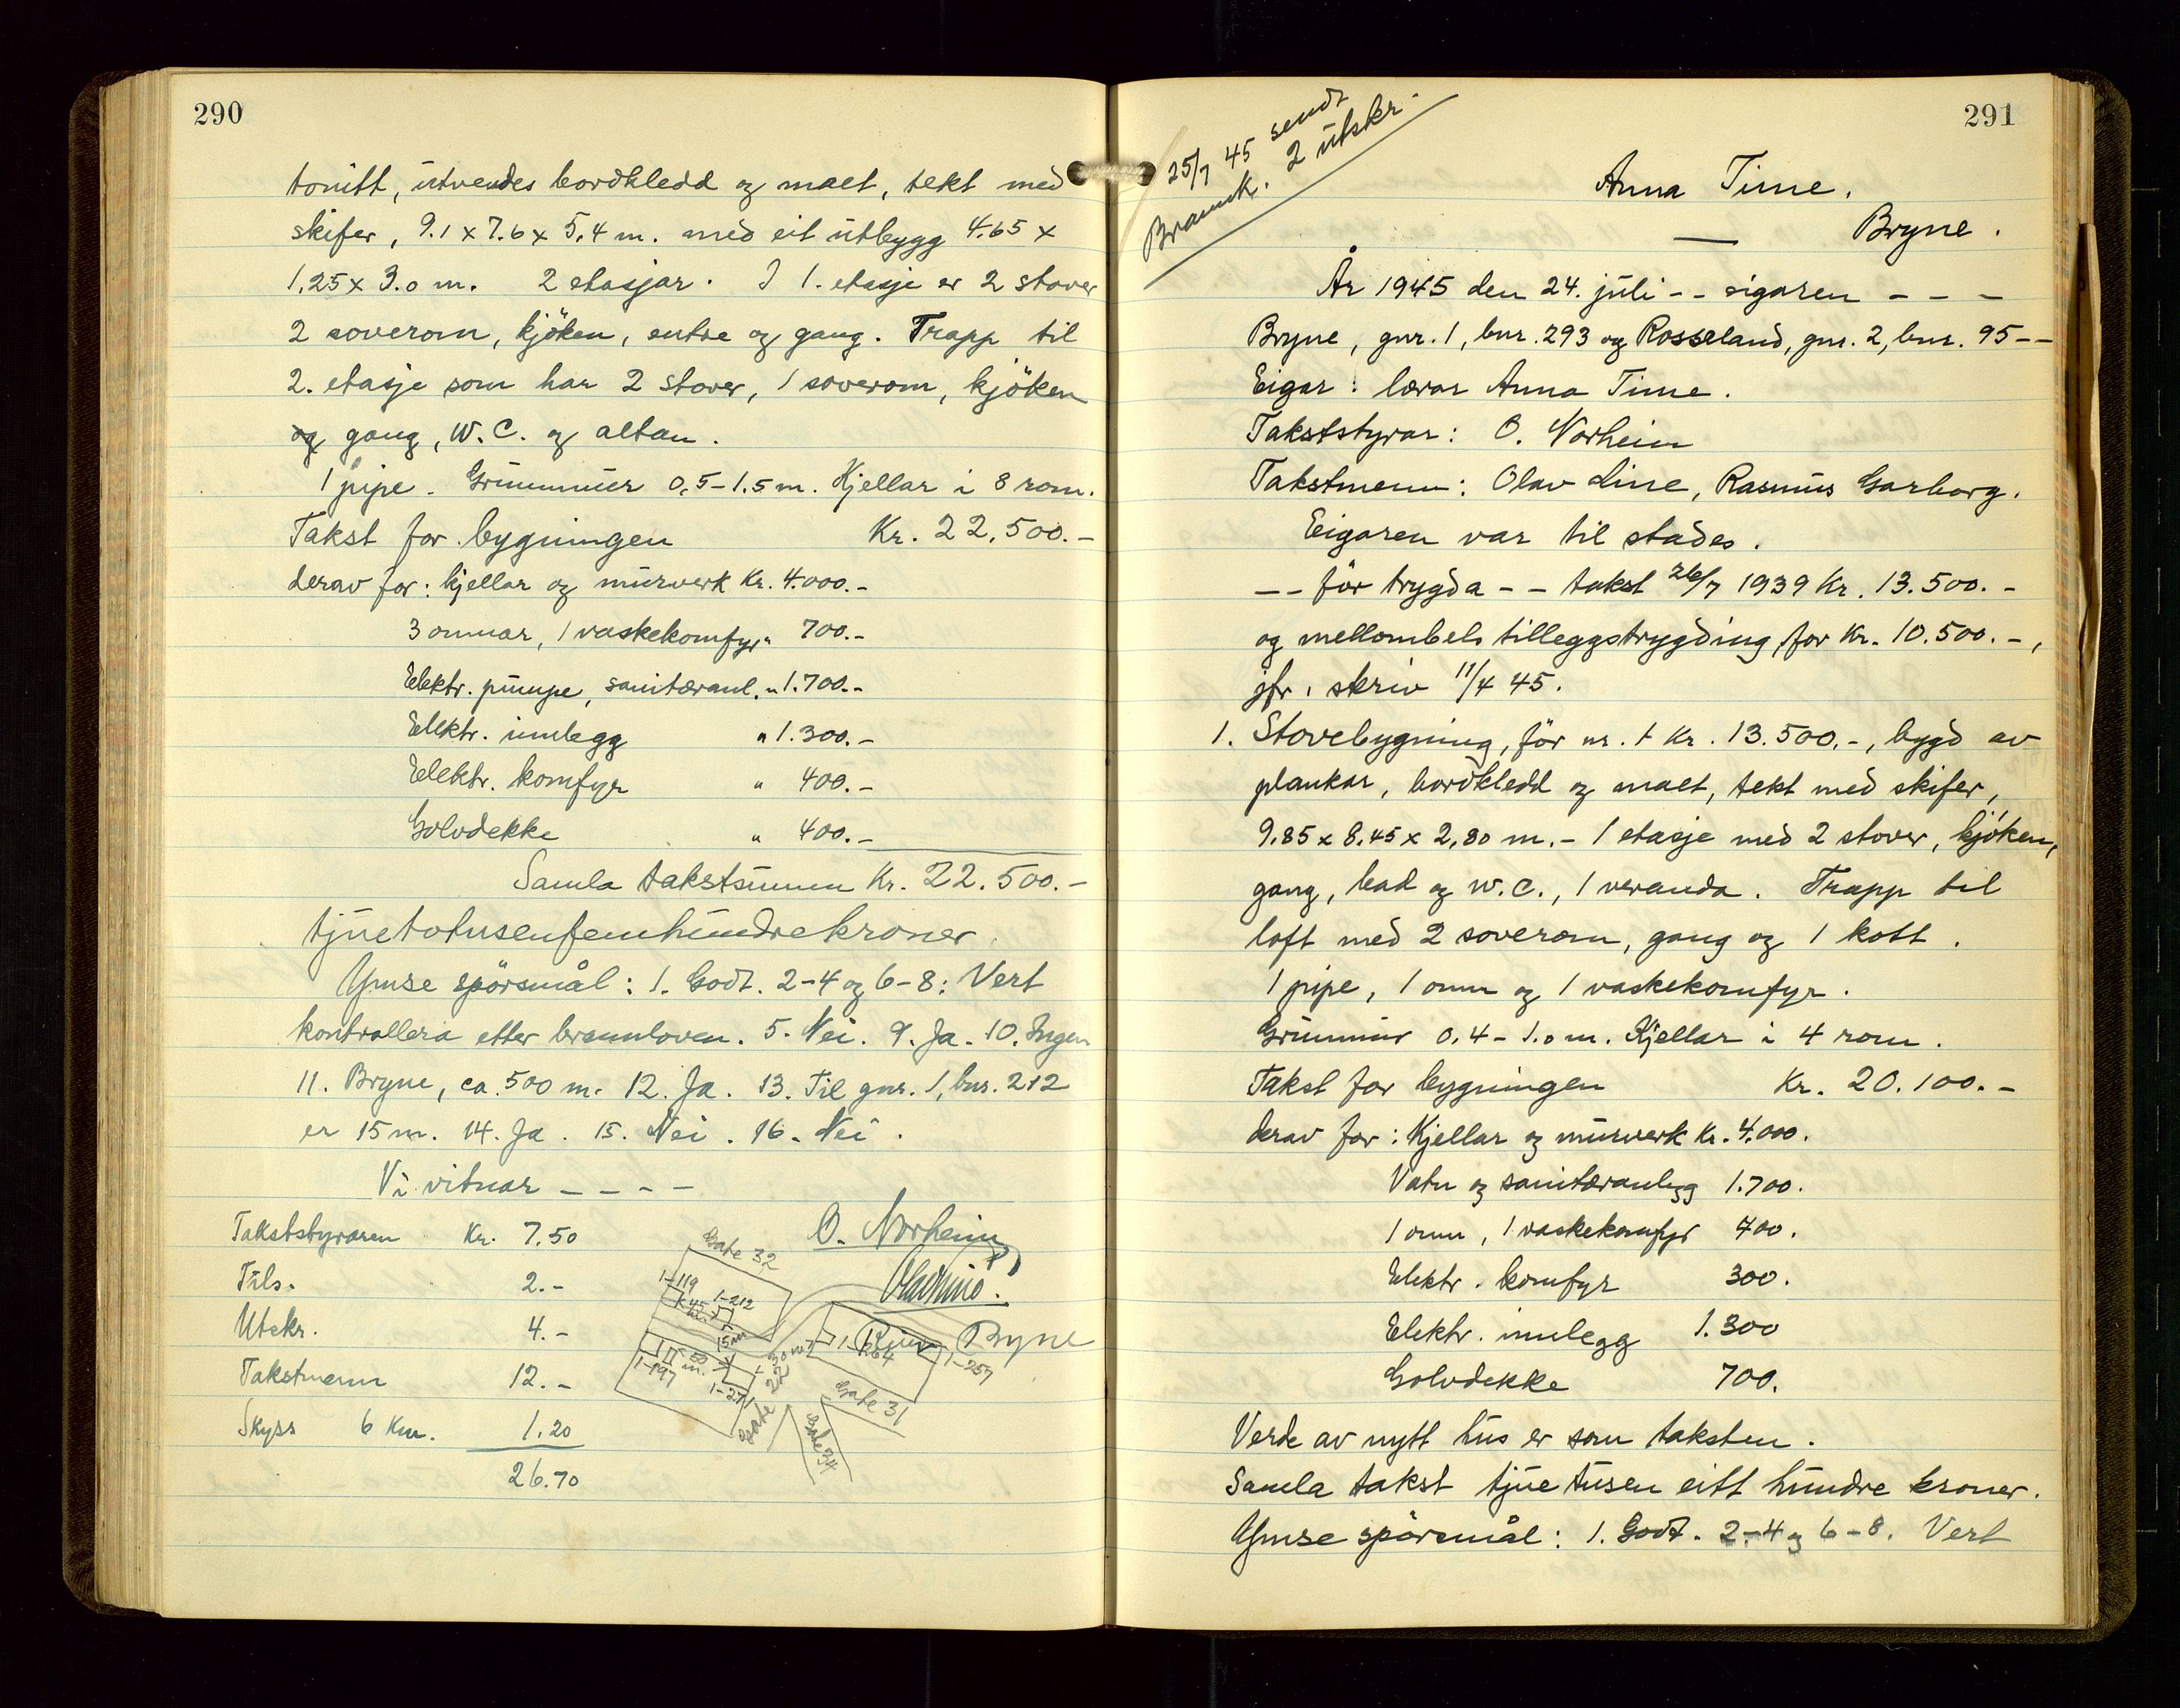 290
tonitt, utvendes bordkledd og malt, tekt med
skifer, 9.1 x 7.6 x 5.4 m. med eit utbygg 4.65 x
1.25 x 3.0 m. 2 etasjar. I 1. etasje er 2 stover
2 soverom, kjöken, entre og gang. Trapp til
2. etasje som har 2 stover, 1 soverom, kjöken
og gang, W.C. og altan.
1 pipe. Grunnmur 0,5-1.5 m. Kjellar i 8 rom.
Takst for bygningen Kr. 22,500.-
derav for: kjellar og murverk Kr. 4.000.-
3 omnar, 1 vaskekomfyr " 700.-
Elektr. pumpe, sanitæranl. " 1.700.-
Elektr. innlegg " 1.300.-
Elektr. komfyr " 400.-
Golvdekke " 400.-
Samla takstsummen Kr. 22.500.-
tjuetotusenfemhundrekroner.
Ymse spörsmål: 1. Godt. 2-4 og 6-8: Vert
kontrollera etter brannloven. 5. Nei. 9. Ja. 10. Ingen
11. Bryne, ca. 500 m. 12. Ja. 13. Til gnr. 1, bnr. 212
er 15 m. 14. Ja. 15. Nei. 16. Nei.
Vi vitnar - - - -
Takststyraren Kr. 7.50
Tils. 2.-
Utskr. 4.-
Takstmenn 12.-
Skyss 6 Km. 1.20
26.70
O. Norheim
Bryne
Gate 32
1-119
1-212
15m
1-197
50 m.
1-271
30 m
Gate 22
1-264
1-257
Gate 31
Gate 34
291
25/7 45 sendt
Brannk. 2 utskr.
Anna Time.
Bryne.
År 1945 den 24. juli - - eigaren - - -
Bryne, gnr. 1, bnr. 293 og Rosseland, gnr. 2, bnr. 95 - -
Eigar: lærar Anna Time.
Takststyrar: O. Norheim
Takstmenn: Olav Line, Rasmus Garborg.
Eigaren var til stades.
- - för trygda - - takst 26/7 1939 Kr. 13.500.-
og mellombels tilleggstrygding for Kr. 10.500.-,
jfr. skriv 11/4 45.
1. Stovebygning, för nr. 1 Kr. 13.500.-, bygd av
plankar, bordkledd og malt, tekt med skifer,
9.85 x 8.45 x 2,80 m. - 1 etasje med 2 stover, kjöken,
gang, bad og w.c., 1 veranda. Trapp til
loft med 2 soverom, gang og 1 kott.
1 pipe, 1 omn og 1 vaskekomfyr.
Grunnmur 0,4 - 1.0 m. Kjellar i 4 rom.
Takst for bygningen Kr. 20.100.-
derav for: Kjellar og murverk Kr. 4.000.
Vatn og sanitæranlegg 1.700.
1 omn, 1 vaskekomfyr 400.
Elektr. komfyr 300.
Elektr. innlegg 1.300
Golvdekke 700.
Verde av nytt hus er som taksten.
Samla takst tjue tusen eitt hundre kroner.
Ymse spörsmål: 1. Godt. 2-4 og 6-8. Vert